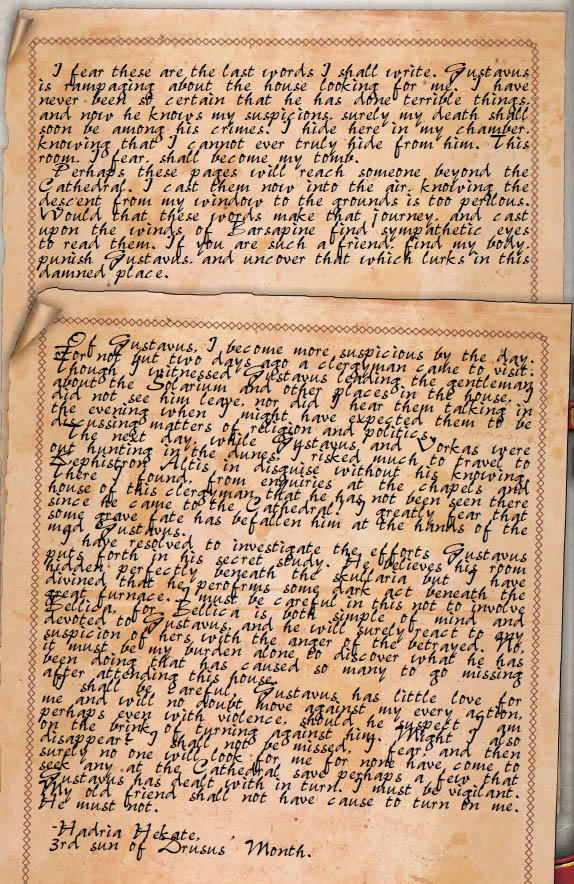 I fear these are the last words I shall write. Gustavus
is rampaging about the house looking for me. I have
never been so certain that he has done terrible things,
and now he knows my suspicions, surely my death shall
soon be among his crimes. I hide here in my chamber,
knowing that I cannot ever truly hide from him. This
room, I fear, shall become my tomb.
Perhaps these pages will reach someone beyond the
Cathedral. I cast them now into the air, knowing the
descent from my window to the grounds is too perilous.
Would that these words make that journey, and cast
upon the winds of Barsapine find sympathetic eyes
to read them. If you are such a friend, find my body,
punish Gustavus, and uncover that which lurks in this
damned place.
Of Gustavus, I become more suspicious by the day.
For not but two days ago a clergyman came to visit.
Though I witnessed Gustavus leading the gentleman
about the Solarium and other places in the house, I
did not see him leave, nor did I hear them talking in
the evening when I might have expected them to be
discussing matters of religion and politics.
The next day, while Gustavus and Vorkas were
out hunting in the dunes, I risked much to travel to
Sephistron Altis in disguise without his knowing.
There I found, from enquiries at the chapels and
house of this clergyman, that he has not been seen there
since he came to the Cathedral. I greatly fear that
some grave fate has befallen him at the hands of the
mad Gustavus.
I have resolved to investigate the efforts Gustavus
puts forth in his secret study. He believes his room
hidden perfectly beneath the skullaria but I have
divined that he perofrms some dark act beneath the
great furnace. I must be careful in this not to involve
Bellica, for Bellica is both simple of mind and
devoted to Gustavus, and he will surely react to any
suspicion of hers with the anger of the betrayed. No,
it must be my burden alone to discover what he has
been doing that has caused so many to go missing
after attending this house.
I shall be careful. Gustavus has little love for
me and will no doubt move against my every action,
perhaps even with violence, should he suspect I am
on the brink of turning against him. Might I also
disappear? I shall not be missed, I fear, and then
surely no one will look for me for none have come to
seek any at the Cathedral save perhaps a few that
Gustavus has dealt with in turn. I must be vigilant.
My old friend shall not have cause to turn on me.
He must not.
-Hadria Hekate,
3rd sun of Drusus' Month.